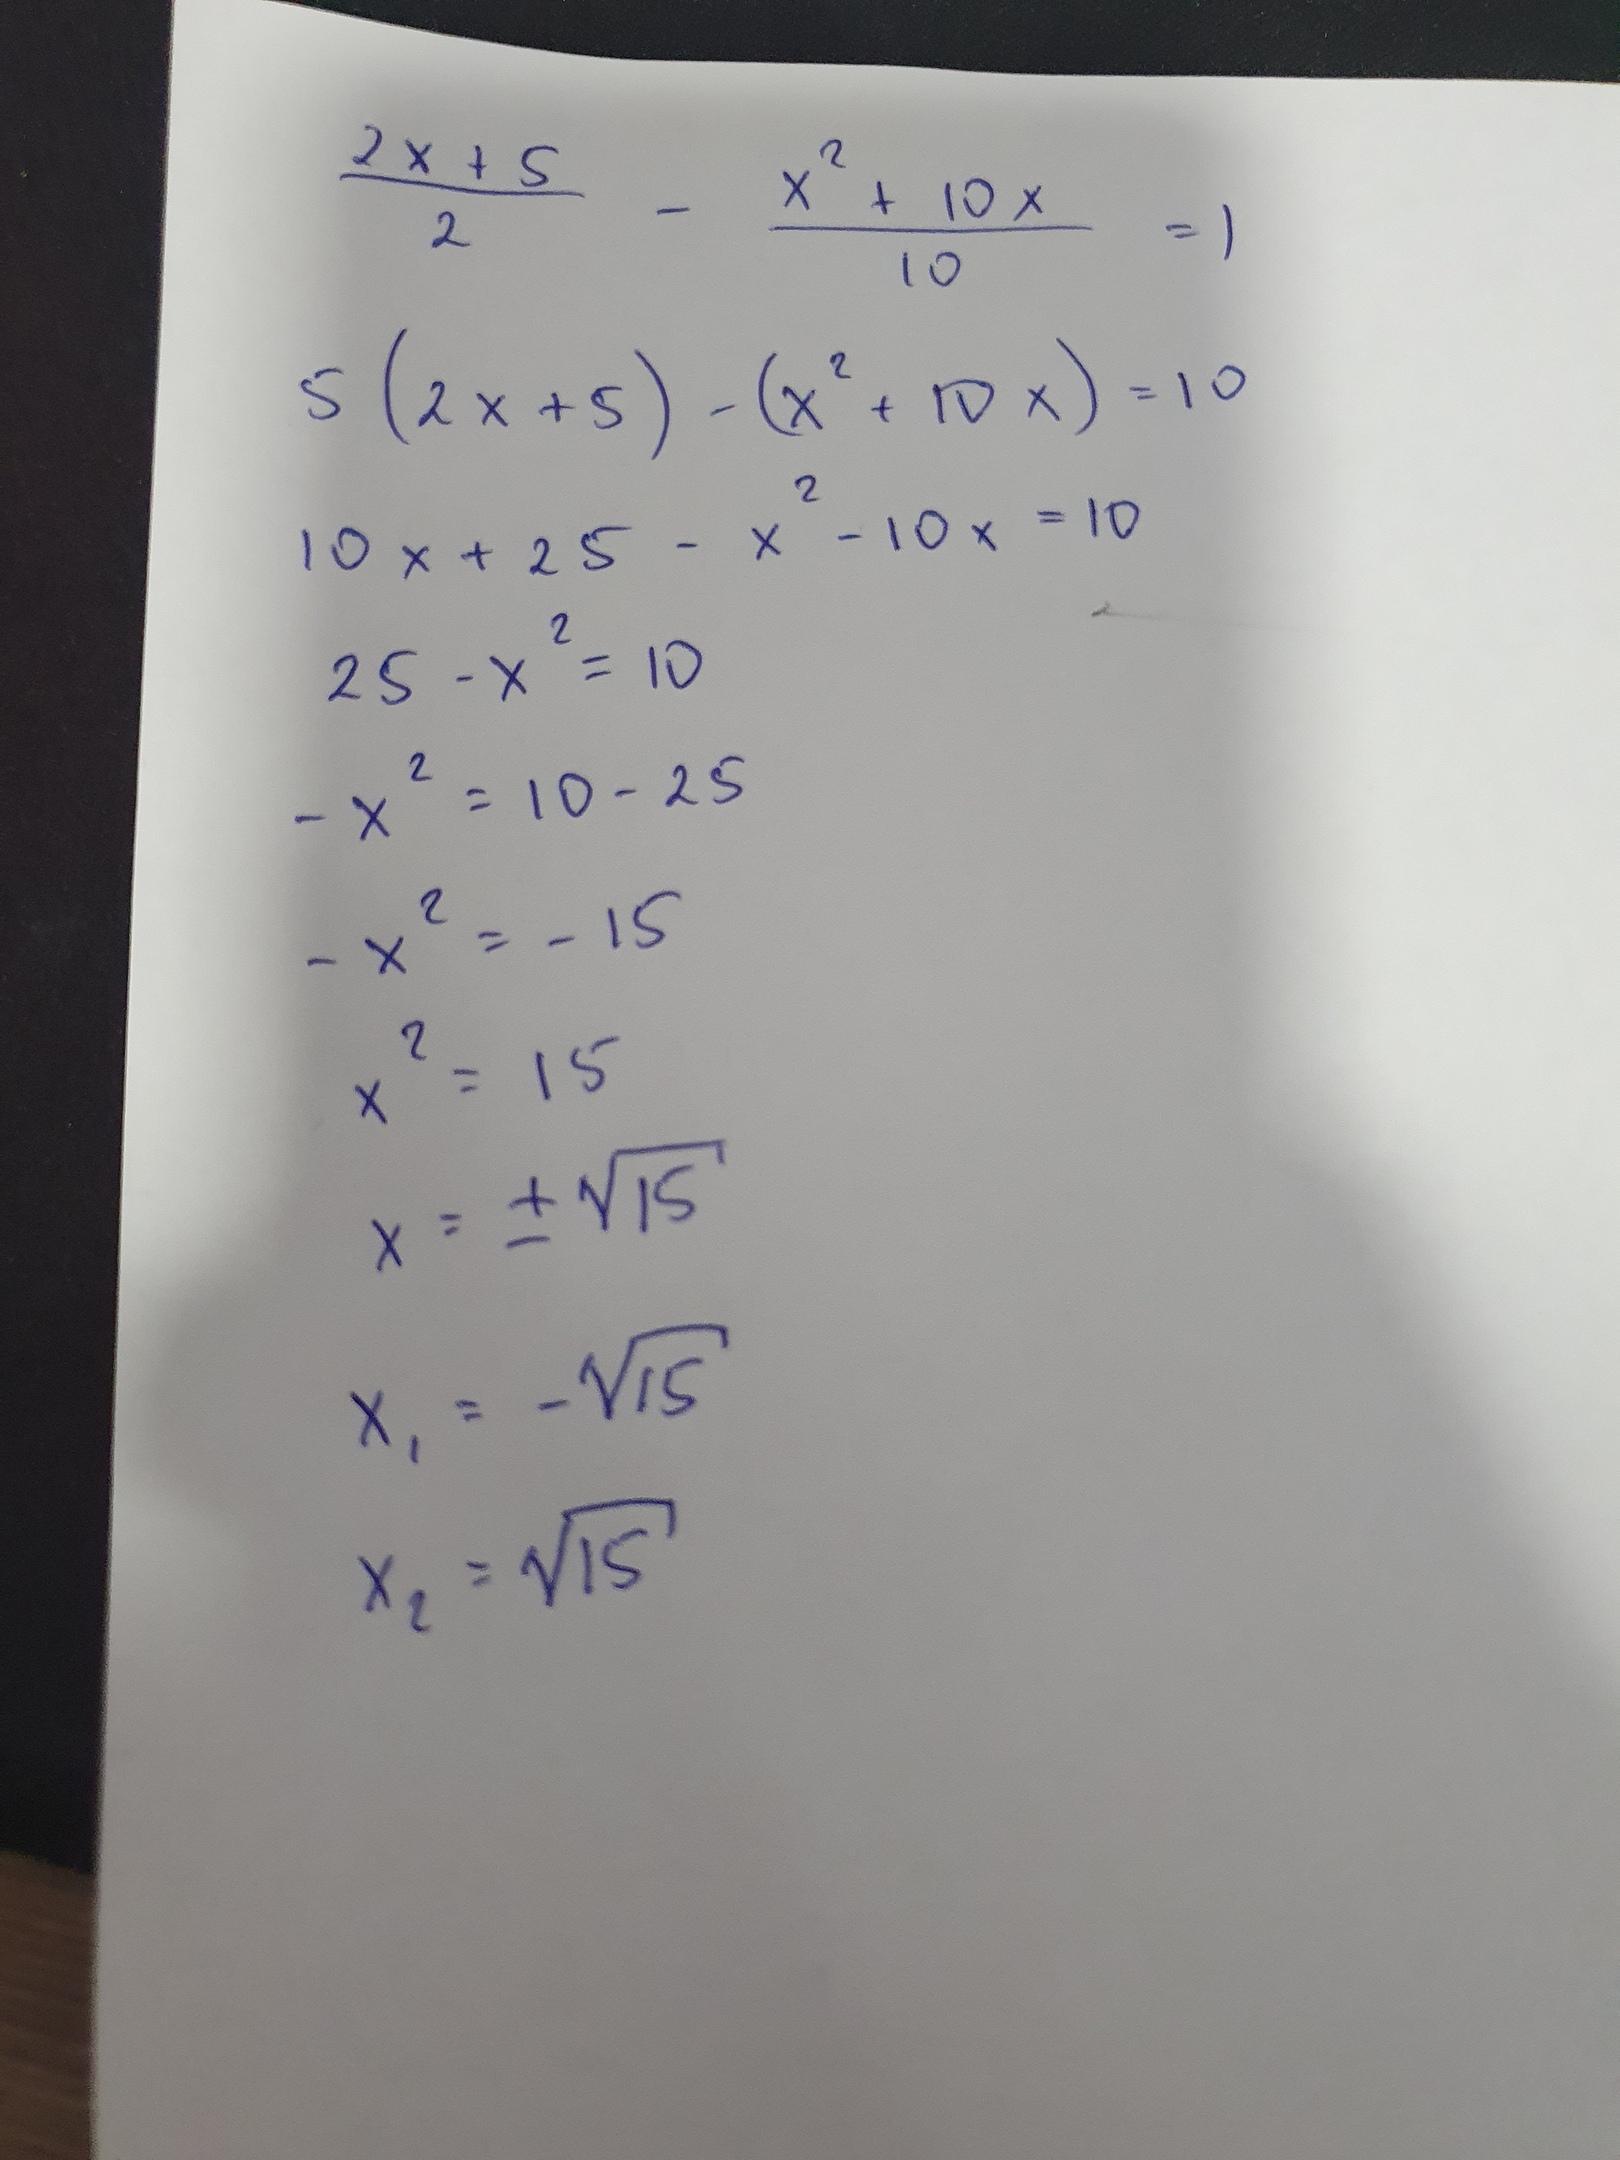 (2x + 5)/2 - (x² + 10x)/10 = 1
5(2x + 5) - (x² + 10x) = 10
10x + 25 - x² - 10x = 10
25 - x² = 10
-x² = 10 - 25
-x² = -15
x² = 15
x = ±√15
x₁ = -√15
x₂ = √15